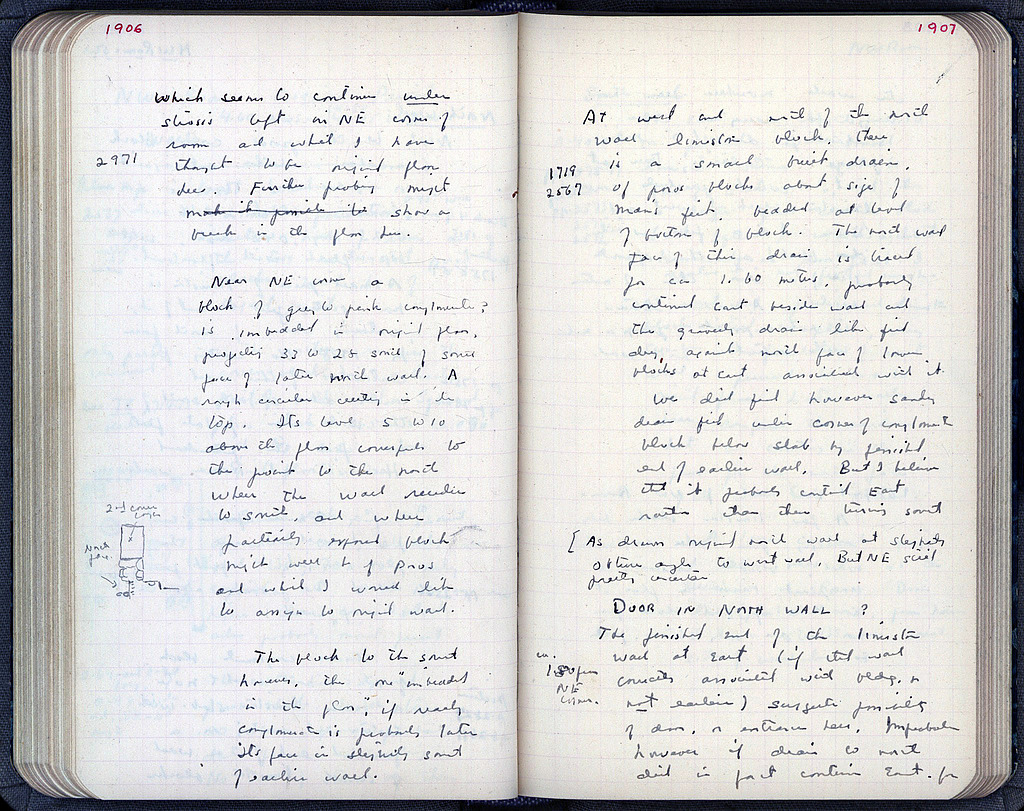 1906
which seems to continue under
stosis left in NE corner of
room and what I have
2971
thought to be original floor
here. Further probing might
make it possible to show a
break in the floor here.
Near NE corner a
block of grey to pink conglomerate?
is imbedded in original floor,
projecting 33 to 25 south of south
face of later north wall. A
rough circular cutting in its
top. Its level 5 to 10
above the floor corresponds to
the point to the north
where the wall recedes
to south, and where
partially exposed block
might well be of poros
and which I would like
to assign to original wall.
North
face
The block to the south
however, the one "imbedded
in the floor", if really
conglomerate is probably later
its face is slightly south
of earlier wall.
1907
At west end north of the north
wall limestone block, there
is a small built drain,
1719
2567
of poros blocks about size of
man's fist, bedded at level
of bottom of block. The north wall
face of this drain is traced
for ca 1.60 metres, probably
continued east beside wall and
the gravelly drain like fill
dug against north face of lower
blocks at east associated with it.
We did find however sandy
drain fill under corner of conglomerate
block below slab by finished
end of earlier wall. But I believe
that it probably continued East
rather than then turning south
[As drawn original north wall at slightly
obtuse angle to west wall. But NE still
pretty uncertain
DOOR IN NORTH WALL ?
The finished end of the limestone
wall at East (if that wall
ca.
1.80 from
NE
corner.
correctly associated with bldg. &
not earlier) suggests possibility
of door, or entrance here. Improbable
however if drain to north
did in fact continue East. for